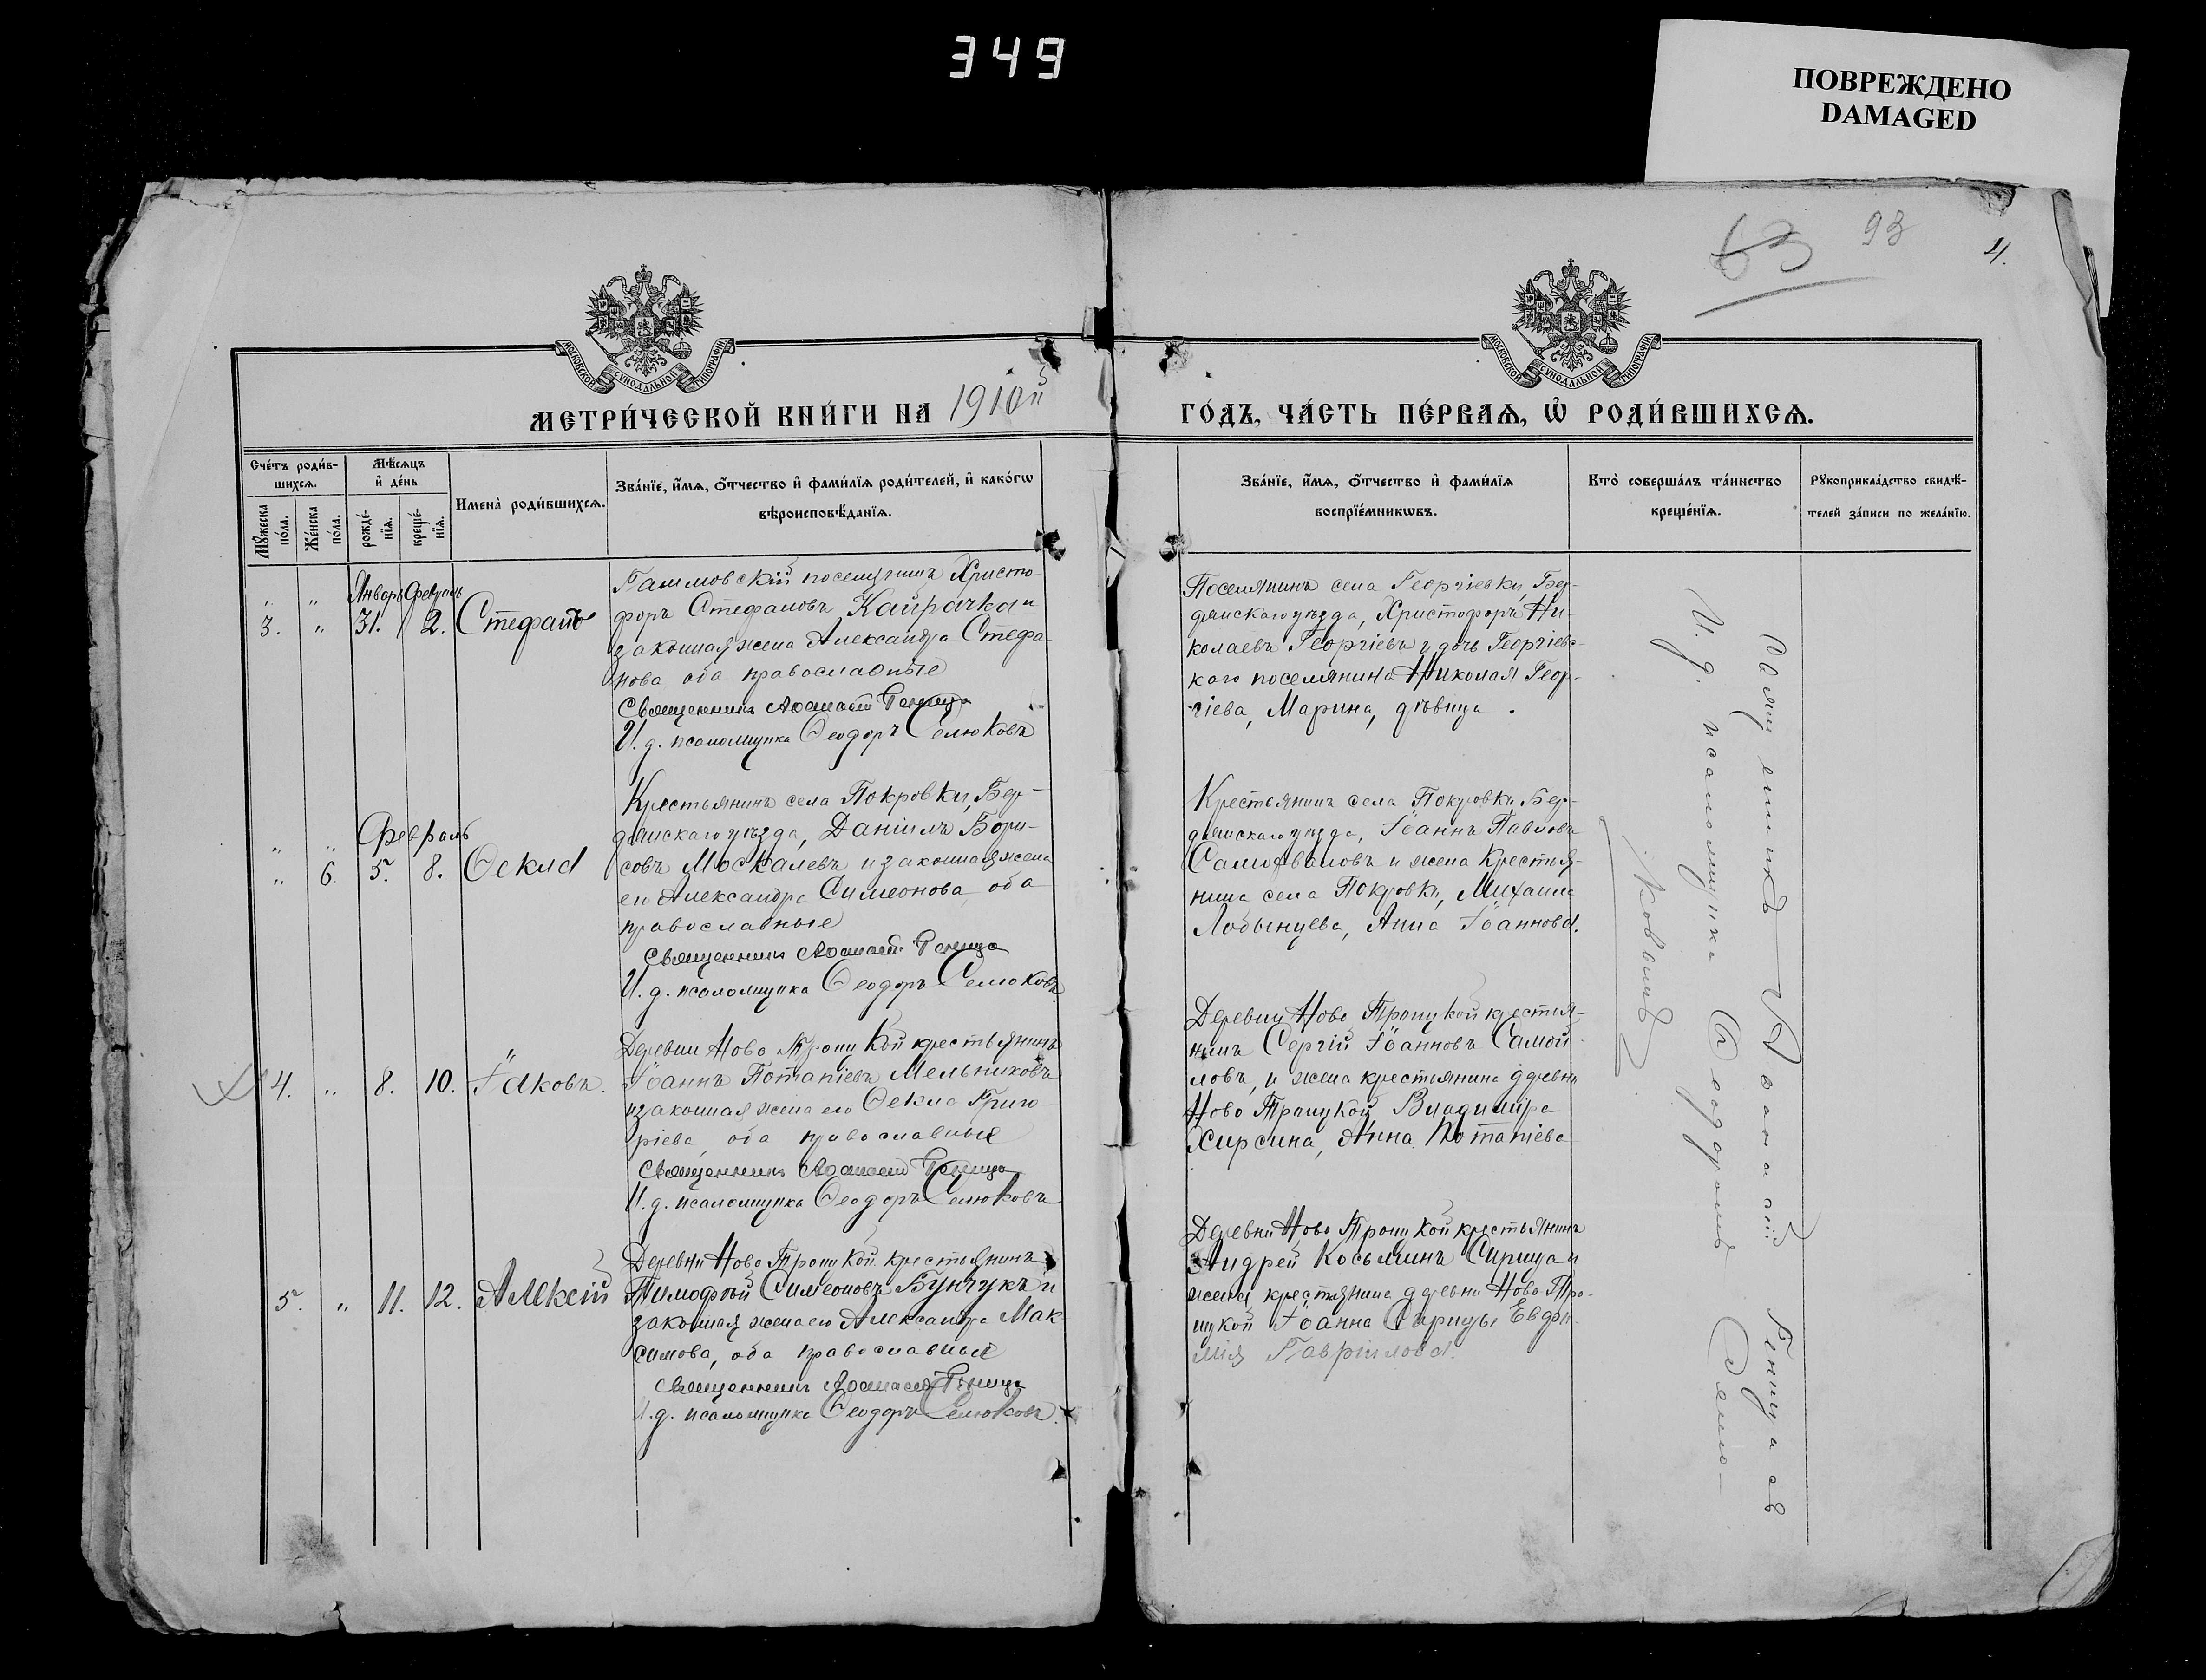 349
ПОВРЕЖДЕНО
DAMAGED
93
4.
МОСКОВСКОЙ СѴНОДАЛЬНОЙ ТИПОГРАФІИ
МОСКОВСКОЙ СѴНОДАЛЬНОЙ ТИПОГРАФІИ
МЕТРИ́ЧЕСКОЙ КНИ́ГИ НА 1910й
ГО́ДЪ, ЧА́СТЬ ПЕ́РВАѦ, Ѡ҆ РОДИ́ВШИХСѦ.
Сче́тъ роди́в-
шихсѧ.
Мꙋ́жеска по́ла.
Же́нска по́ла.
Мѣ́сѧцъ
и҆ де́нь
рожде́-
нїѧ.
креще́-
нїѧ.
Имена̀ роди́вшихсѧ.
Зва́нїе, и҆́мѧ, ѻ҆́тчество и҆ фами́лїѧ роди́телей, и҆ како́гѡ
вѣроисповѣ́данїѧ.
Зва́нїе, и҆́мѧ, ѻ҆́тчество и҆ фами́лїѧ
воспрїе́мникѡвъ.
Кто̀ соверша́лъ та́инство
креще́нїѧ.
Рꙋкоприкла́дство свидѣ́-
телей за́писи по жела́нїю.
Январь Февраль
3. " 31. 2. Стефанъ
поселянинъ Христо-
форъ Стефановъ Кайрачка и
законная жена Александра Стефа-
нова оба православные
Священникъ Аѳанасій Геница
И. д. псаломщика Ѳеодоръ Селюковъ
Поселянинъ села Георгіевки, Бер-
дянскаго уѣзда, Христофоръ Ни-
колаевъ Георгіевъ и дочь Георгіевс-
каго поселянина Николая Геор-
гіева, Марина, дѣвица.
Февраль
" 6. 5. 8. Ѳекла
Крестьянинъ села Покровки, Бер-
дянскаго уѣзда, Даніилъ Бори-
совъ Москалевъ и законная жена
его Александра Симеонова, оба
православные
Священникъ Аѳанасій Геница
И. д. псаломщика Ѳеодоръ Селюковъ
Крестьянинъ села Покровки, Бер-
дянскаго уѣзда, Іоаннъ Павловъ
и жена крестья-
нина села Покровки, Михаила
Лобынцева, Анна Іоаннова.
4. " 8. 10. Іаковъ.
Деревни Ново Троицкой крестьянинъ
Іоаннъ Потапіевъ Мельниковъ
и законная жена его Ѳекла Григо-
ріева, оба православные
Священникъ Аѳанасій Геница
И. д. псаломщика Ѳеодоръ Селюковъ
Деревни Ново Троицкой крестья-
нинъ Сергій Іоанновъ Самой-
ловъ, и жена крестьянина деревни
Ново Троицкой Владиміра
Хирсина, Анна Потапіева
5. " 11. 12. Алексій
Деревни Ново Троицкой крестьянинъ
Тимофѣй Симеоновъ Бунчукъ и
законная жена его Александра Мак-
симова, оба православные
Священникъ Аѳанасій Геница
И. д. псаломщика Ѳеодоръ Селюковъ.
Деревни Ново Троицкой крестьянинъ
Андрей Косьминъ Сирица и
жена крестьянина деревни Ново-Тро-
ицкой Іоанна Сирицы Евфи-
мія Гавріилова.
Священникъ Аѳанасій Геница съ
И. д. псаломщика Ѳеодоромъ Селю-
ковымъ